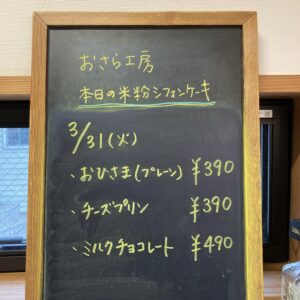 おさら工房
本日の米粉シフォンケーキ
3/31(火)
・おひさま(プレーン) ¥390
・チーズプリン ¥390
・ミルクチョコレート ¥490